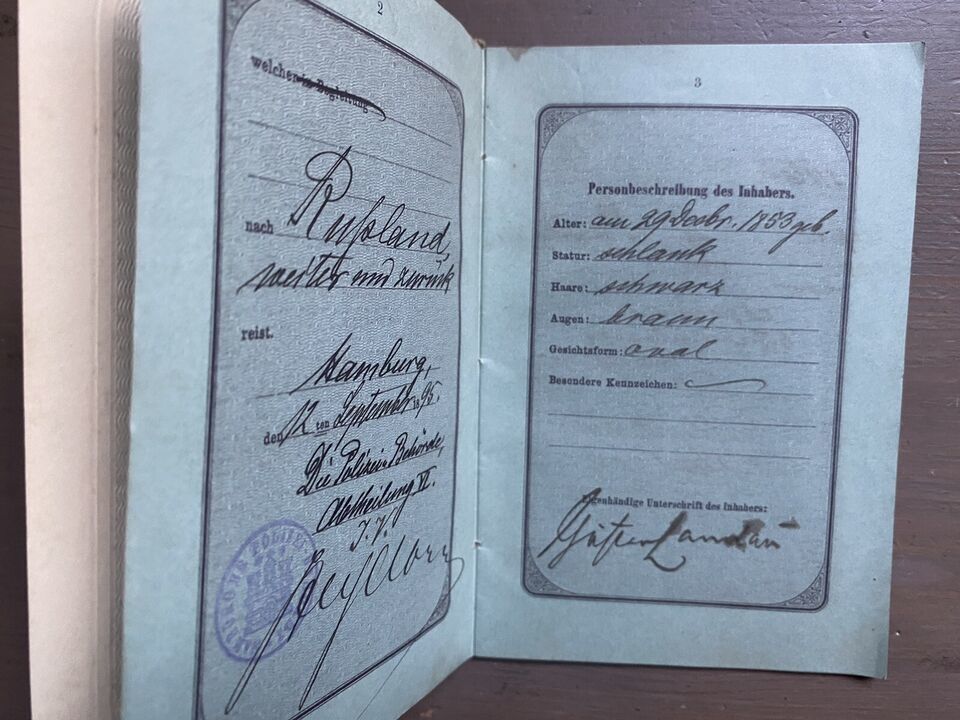 2
welcher in Begleitung
nach Rußland,
weiter und zurück
reist.
Hamburg,
den 12 ten September 1895.
Die Polizei-Behörde,
Abtheilung VI.
I. V.
3
Personbeschreibung des Inhabers.
Alter: am 29 Decbr. 1853 geb.
Statur: schlank
Haare: schwarz
Augen: braun
Gesichtsform: oval
Besondere Kennzeichen:
Eigenhändige Unterschrift des Inhabers:
Landau